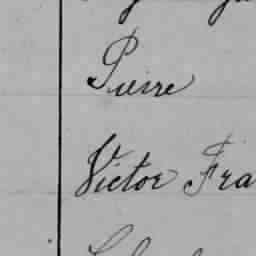 Pierre
Victor Fra